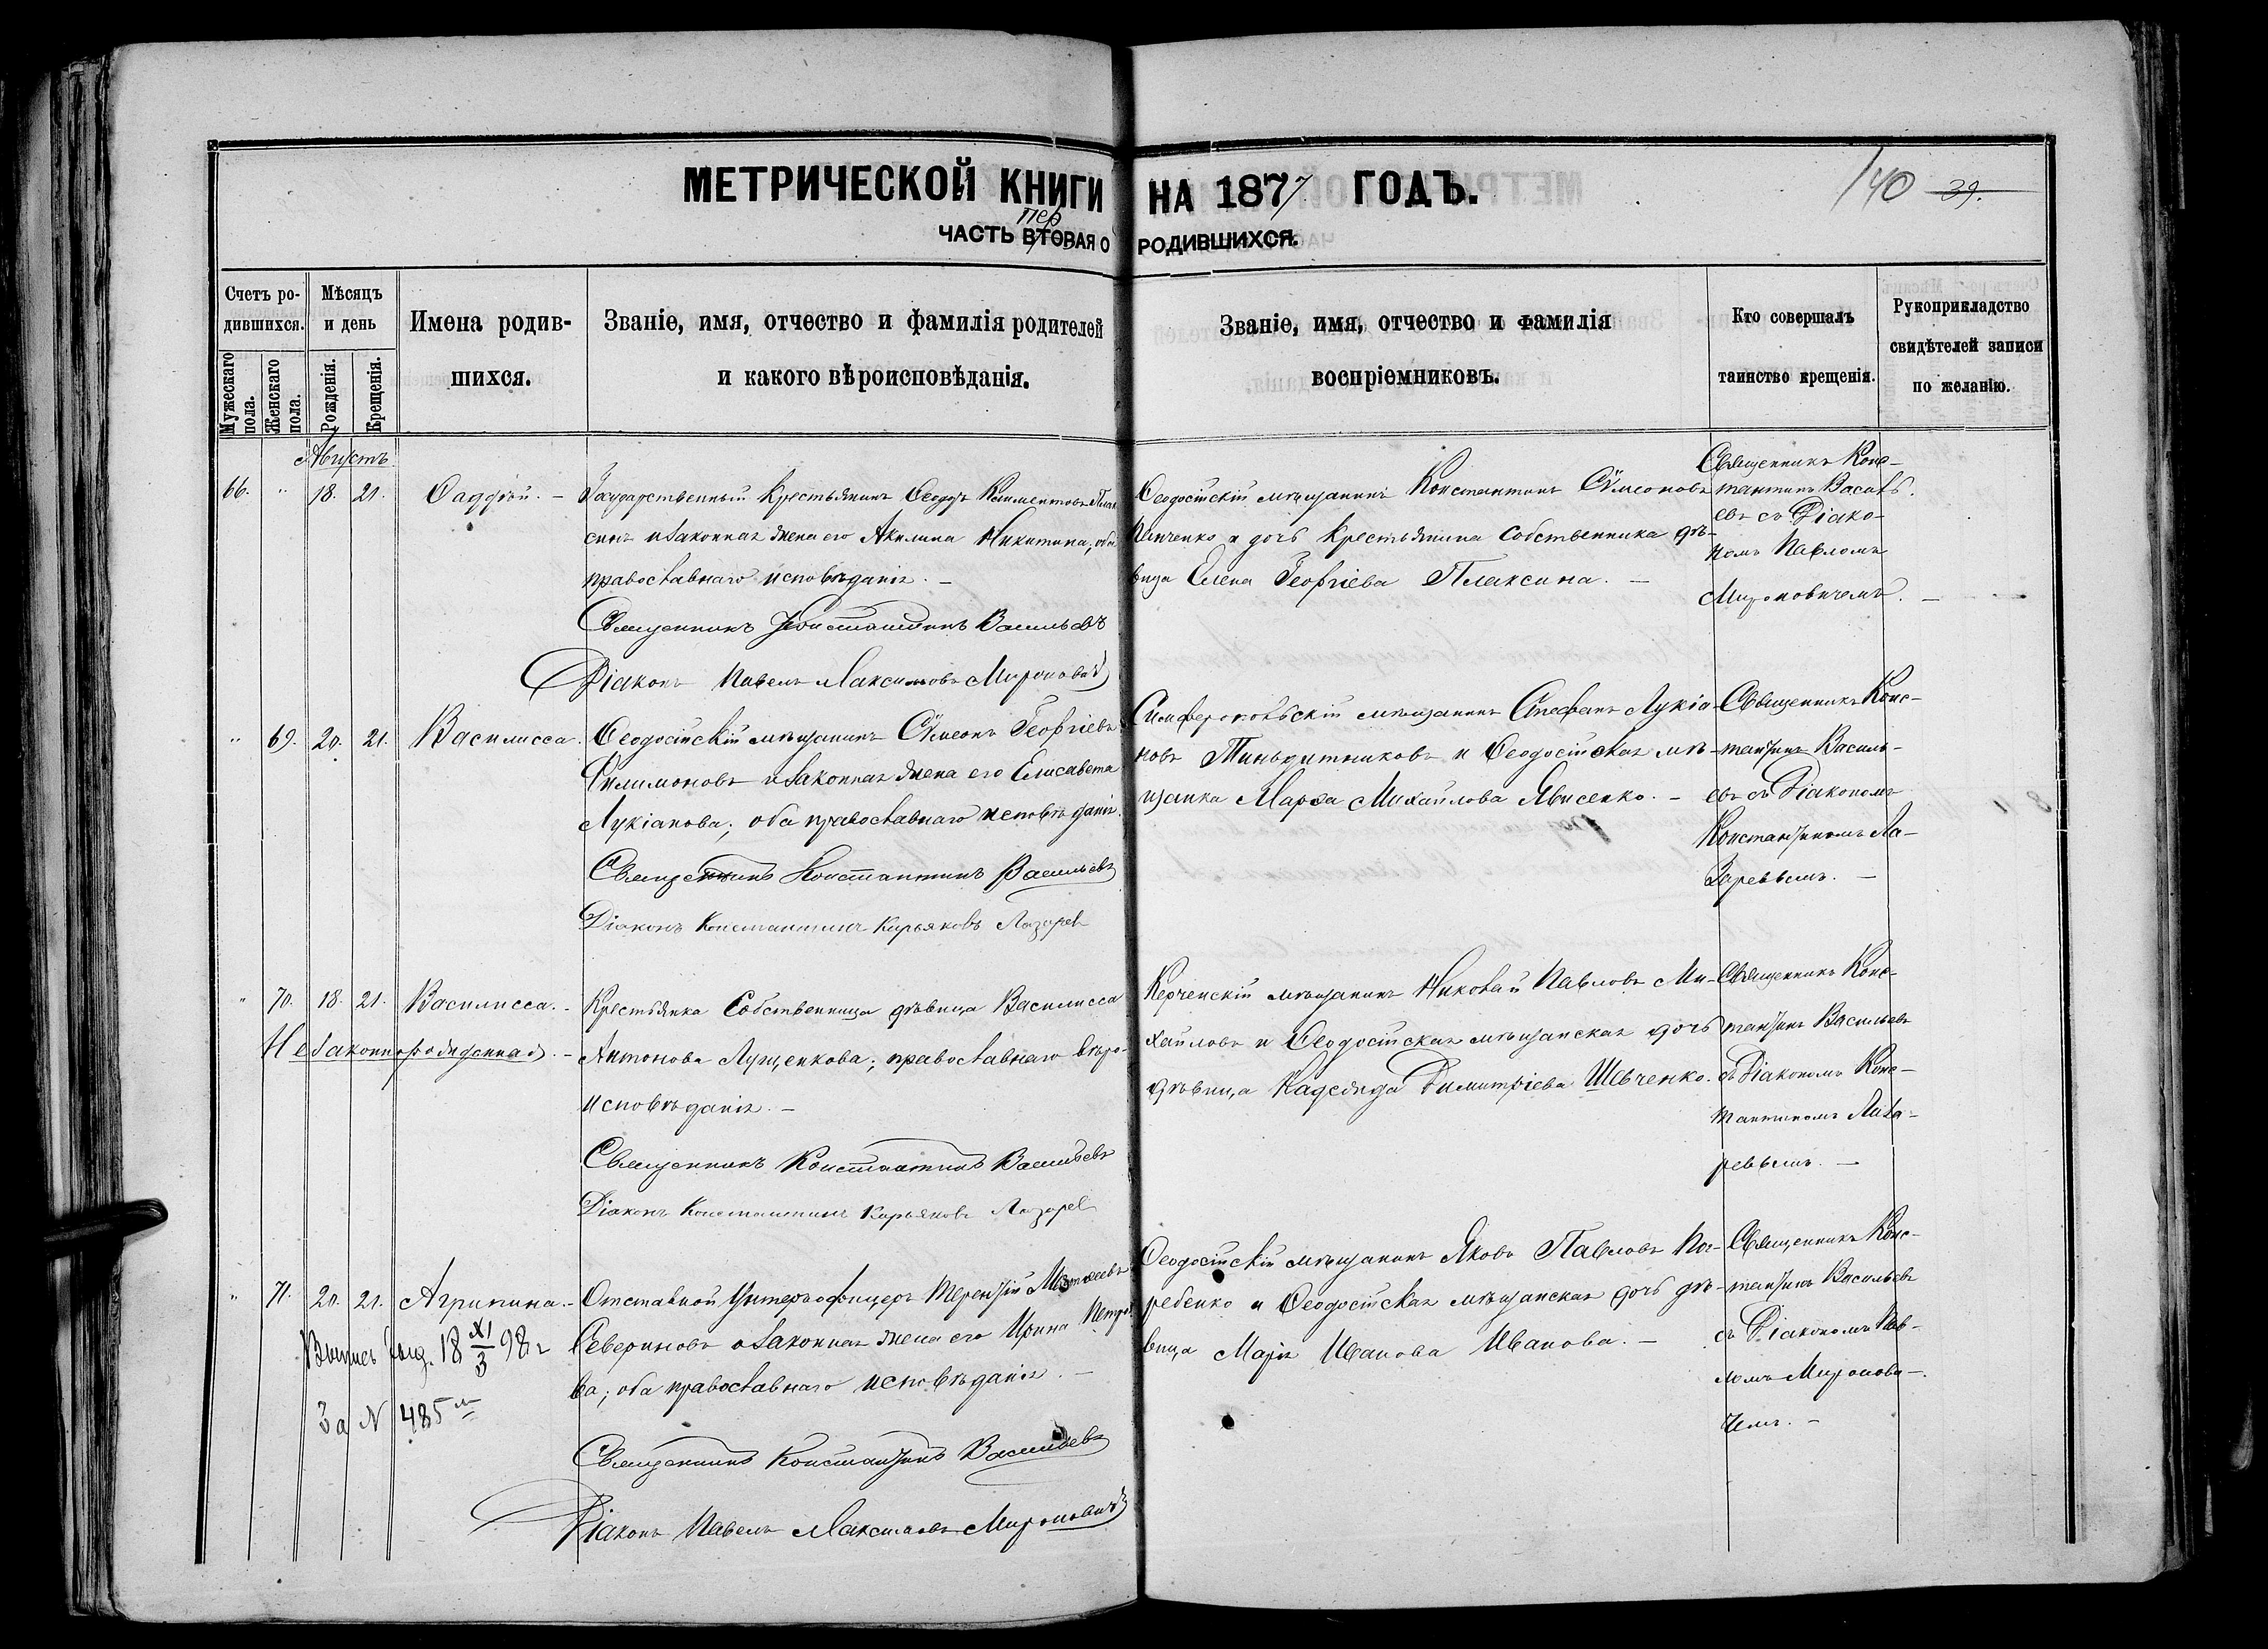 МЕТРИЧЕСКОЙ КНИГИ НА 1877 ГОДЪ.
140 39.
пер
ЧАСТЬ ВТОРАЯ О РОДИВШИХСЯ.
Счетъ ро-
дившихся.
Мужескаго пола.
Женскаго пола.
Мѣсяцъ
и день
Рожденія.
Крещенія.
Имена родив-
шихся.
Званіе, имя, отчество и фамилія родителей
и какого вѣроисповѣданія.
Званіе, имя, отчество и фамилія
воспріемниковъ.
Кто совершалъ
таинство крещенія.
Рукоприкладство
свидѣтелей записи
по желанію.
Августъ.
66. " 18. 21. Ѳаддѣй. –
Государственный крестьянинъ Ѳеодоръ Климентовъ Плак
синъ и законная жена его Акилина Никитина, оба
православнаго исповѣданія. –
Священникъ Константинъ Васильевъ
Діаконъ Павелъ Максимовъ Мироновичъ
Ѳеодосійскій мѣщанинъ Константинъ Сѵмеоновъ
Ильченко и дочь крестьянина собственника дѣ-
вица Елена Георгіева Плаксина. –
Священникъ Конс-
тантинъ Василь
евъ съ Діако-
номъ Павломъ
Мироновичемъ. –
" 69. 20. 21. Василисса.
Ѳеодосійскій мѣщанинъ Сѵмеонъ Георгіевъ
Филимоновъ и законная жена его Елисавета
Лукіанова; оба православнаго исповѣданія.
Священникъ Константинъ Васильевъ
Діаконъ Константинъ Кирьяковъ Лазарев
Симферопольскій мѣщанинъ Стефанъ Лукіа-
новъ и Ѳеодосійская мѣ-
щанка Марѳа Михайлова –
Священникъ Конс-
тантинъ Василь-
евъ съ Діакономъ
Константиномъ Ла-
заревымъ. –
" 70. 18. 21. Василисса. –
Незаконнорожденная. –
Крестьянка Собственница дѣвица Василисса
Антонова Лущенкова; православнаго вѣро-
исповѣданія. –
Священникъ Константинъ Васильевъ
Діаконъ Константинъ Кирьяковъ Лазарев
Керченскій мѣщанинъ Николай Павловъ Ми-
хайловъ и Ѳеодосійская мѣщанская дочь
дѣвица Надежда Димитріева Шевченко.
Священникъ Конс-
тантинъ Васильевъ
съ Діакономъ Конс-
тантиномъ Лаза-
ревымъ. –
" 71. 20. 21. Агрипина. –
Выпись выд. 18 XI/3 98 г
За N 485 м
Отставной Унтеръ офицеръ Терентій Матѳеевъ
Севериновъ и законная жена его Ирина Петро
ва; оба православнаго исповѣданія. –
Священникъ Константинъ Васильевъ
Діаконъ Павелъ Максимовъ Мироновичъ
Ѳеодосійскій мѣщанинъ Яковъ Павловъ По-
ребенко и Ѳеодосійская мѣщанская дочь дѣ-
вица Марія Иванова Иванова. –
Священникъ Конс-
тантинъ Васильевъ
съ Діакономъ Пав-
ломъ Миронови-
чемъ. –